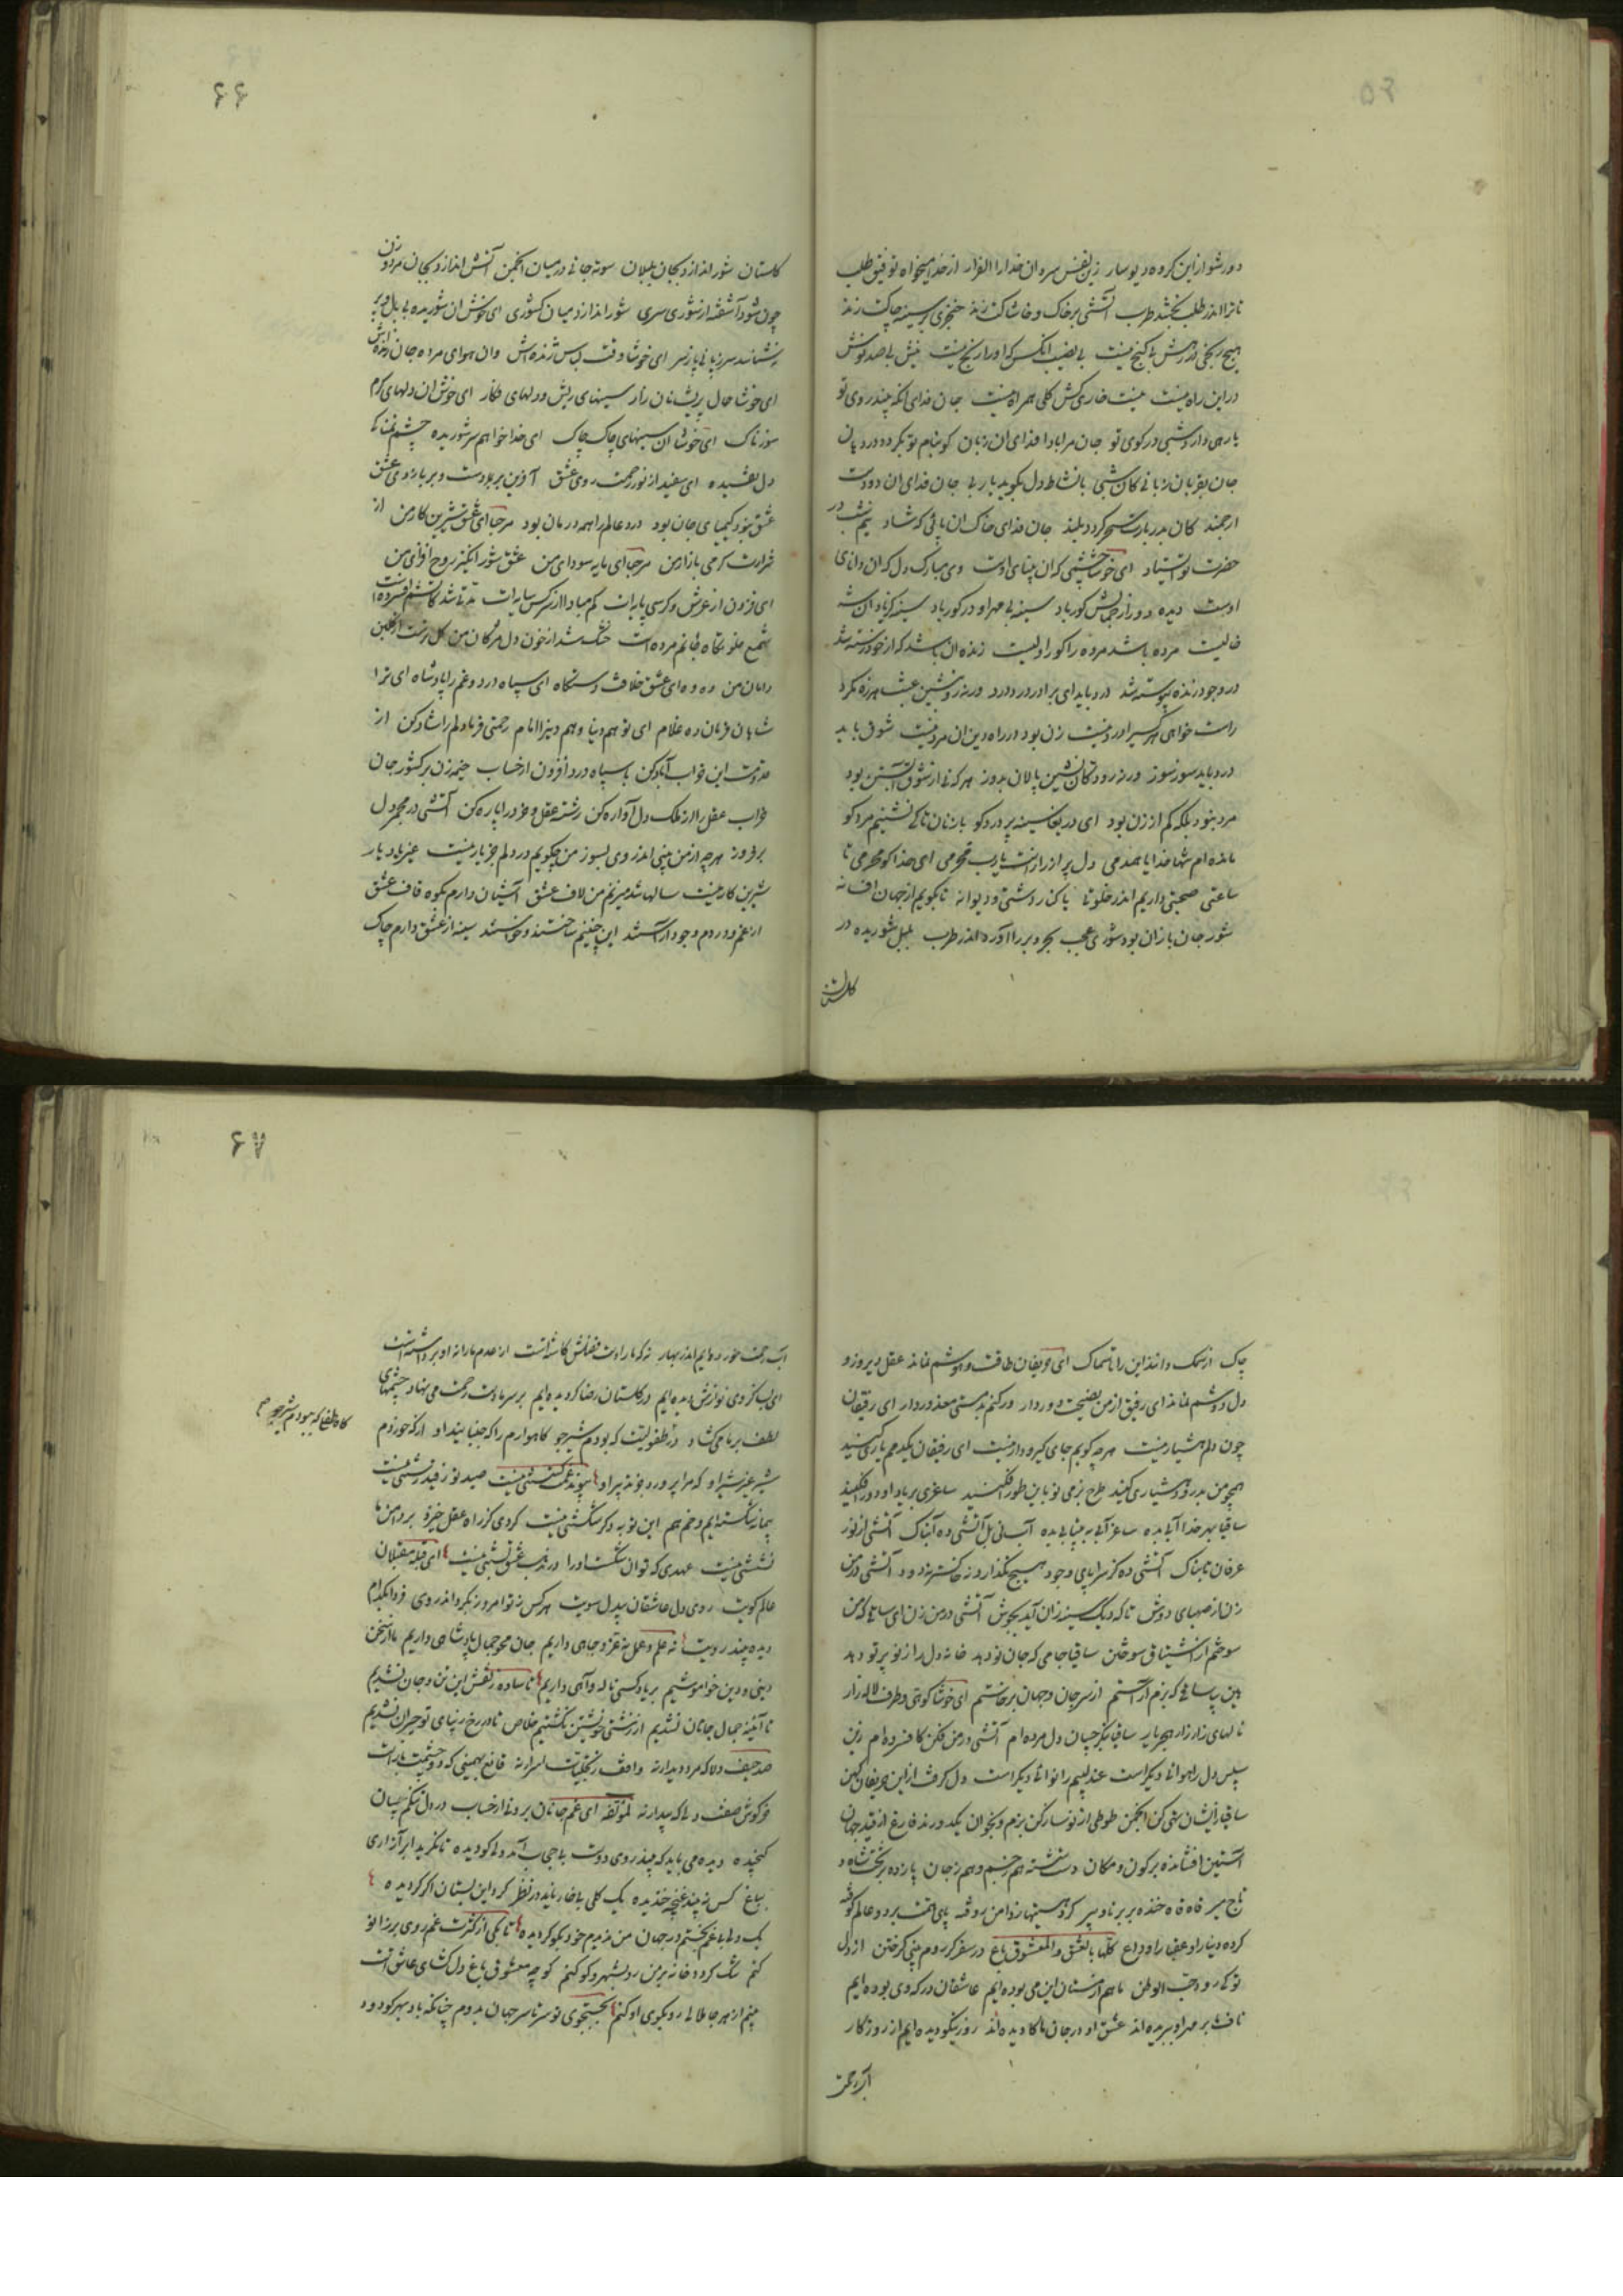 دور شو ازین کروه دیوسار زین نفس سردان خدارا الفرار از خدا میخواه توفیق طلب
تا ترا اندر طلب بخشد طرب آتشی بر خاک و خاشاکت زند خنجری بر سینه چاکت زند
هیچ رنجی در رهش بی کنج نیست بی نصیب انکس که اورا رنج نیست نیش بی صد نوش
در این راه نیست نیست خاری کش کلی همراه نیست جان فدای انکه بیند روی تو
یا رهی دارد شبی در کوی تو جان مرا بادا فدای ان زبان کو بنام تو بکردد در دهان
جان بقربان زبانی کان شبی با نشاط دل بکوید یا ربی جان فدای ان دو دست
ارجمند کان بدر بارت سحر کردد بلند جان فدای خاک ان پائی که شاد نیم شب در
حضرت تو ایستاد ای خوشا چشمی که ان بینای اوست وی مبارک دل که ان دانای
اوست دیده دور از جمالش کور باد سینه بی مهر او در کور باد سینه کز یاد ان شه
خالیست مرده باشد مرده را کور اولیست زنده ان باشد که از خود رسته شد
در وجود زنده پیوسته شد درد باید ای برادر درد درد ورنه رو بنشین عبث هرزه مکرد
راست خواهی هر کسیرا درد نیست زن بود در راه دین ان مرد نیست شوق باید
درد باید سوز سوز ورنه رو دکان نشین پالان بدوز هر که نی از شوق آبستن بود
مرد نبود بلکه کم از زن بود ای دریغا سینه پر درد کو با زنان تا کی نشینم مرد کو
مانده ام تنها خدایا همدمی دل پر از راز است یا رب محرمی ای خدا کو محرمی تا
ساعتی صحبتی داریم اندر خلوتی یا کنار دشتی و دیوانه تا بکویم از جهان افسانه
شور جان بازان بود شوری عجب بحر و بر را آورد اندر طرب بلبل شوریده در
کلستان
۶۶
کلستان شور اندازد بجان بلبلان سوته جانی در میان انجمن آتش اندازد بجان مرد و زن
چون شود آشفته از شوری سری شور اندازد میان کشوری ای خوش ان شوریده بی بال و پر
ای خوشا حال پریشانان زار سینهای ریش و دلهای فکار ای خوش ان دلهای کرم
سوزناک ای خوشا ان سینهای چاک چاک ای خدا خواهم سر شوریده چشم نمناک
دل تفسیده ای سفید از نور رحمت روی عشق آفرین بر دست و بر بازوی عشق
عشق نبود کیمیای جان بود درد عالم را همه درمان بود مرحبا ای عشق شیرین کار من از
شرارت کرمی بازار من مرحبا ای مایه سودای من عشق شور انکیز روح افزای من
ای فزون از عرش و کرسی پایه ات کم مبادا از سر کس سایه ات مدتی شد کاتشم افسرده است
شمع خلوتکاه جانم مرده است خشک شد از خون دل مژکان من کل نرست از کلبن
دامان من ده وه ای عشق خلافت دستکاه ای سپاه درد و غم را پادشاه ای ترا
شاهان فرمان ده غلام ای تو هم دنیا و هم دینرا امام رحمتی فرما دلم را شاد کن از
مقدمت این خراب آباد کن با سپاه درد افزون از حساب خیمه زن بر کشور جان
خراب عقل را از ملک دل آواره کن رشته عقل و خرد را پاره کن آتشی در مجمر دل
بر فروز هر چه از من بینی اندر وی بسوز من چکویم در دلم جز یار نیست غیر یاد یار
شیرین کار نیست سالها شد میزنم من لاف عشق آشیان دارم بکوه قاف عشق
از غم و دردم وجود آراستند این چنینم ساختند و خواستند سینه از عشق دارم چاک
چاک از سمک دانند این را تا سماک ای حریفان طاقت و هوشم نماند عقل دیروز و
دل دوشم نماند ای رفیق از من نصیحت دور دار ور کنم بد مستی معذور دار ای رفیقان
چون دلم هشیار نیست هر چه کویم جای کیر و دار نیست ای رفیقان یکدم یاری کنید
همچو من بدرود هشیاری کنید طرح بزمی نو باین طور افکنید ساغری بر یاد او دور افکنید
ساقیا بهر خدا آبی بده ساغر آبی به بیتابی بده آب نی بل آتشی ده آبناک آتشی از نور
عرفان تابناک آتشی ده کز سراپای وجود هیچ نکذارد نه خاکستر نه دود آتشی در من
زن از صهبای دوش تا که دیک سینه زان آید بجوش آتشی در من زن ای ساقی که من
سوختم از اشتیاق سوختن ساقیا جامی که جان نو دهد خانه دل را ز نو پرتو دهد
هین بیا ساقی که بزم آراستم از سر جان و جهان برخاستم ای خوشا کوهی و طرف لاله زار
نالهای زار زار هجر یار ساقیا بنکر چسان دل مرده ام آتشی در من فکن کافسرده ام زین
سپس دل را هوائی دیکر است عندلیبم را نوائی دیکر است دل کرفت از این حریفان کهن
ساقیا زایشان تهی کن انجمن طوطی از نو ساز کن بزم و بخوان یکدو رند فارغ از قید جهان
آستین افشانده بر کون و مکان دست شسته هم ز جسم و هم ز جان پا زده بر تخت شاه و
تاج میر قاه قاه خنده بر برنا و پیر کرد هستیها ز دامن روفته پای همت بر دو عالم کوفته
کرده دنیا را و عقبا را وداع کلها بالعشق والمعشوق باغ در سفر کردم پی کرفتن از دل
نوکی رو و حب الوطن ما هم از مستان این می بوده ایم عاشقان درکه وی بوده ایم
ناف ما بر مهر او ببریده اند عشق او در جان ما کاویده اند روز نیکو دیده ایم از روزکار
آب رحمت
۶۷
آب رحمت خورده ایم اندر بهار نه که ما را دست فضلش کاشتست از عدم ما را نه او برداشتست
ای بسا کز وی نوازش دیده ایم در کلستان رضا کردیده ایم بر سر ما دست رحمت می نهاد چشمهای
لطف بر ما می کشاد در طفولیت که بودم شیر جو کاهوارم را که جنبانید او از که خوردم
شیر غیر شیر او که مرا پرورد جز تدبیر او پیوند غمت کسستنی نیست صید تو ز قید رستنی نیست
پیمانه شکسته ایم و خم هم این توبه دکر شکستنی نیست کردی کز راه عقل خیزد بر دامن ما
نشستنی نیست عهدی که توان شکست اورا در مذهب عشق بستنی نیست ای قبله مقبلان
عالم کویت روی دل عاشقان بیدل سویت هر کس نه تو امروز نکرد اندر وی فردا بکدام
دیده بیند رویت نه علم و عمل نه عز و جاهی داریم جان محو جمال پادشاهی داریم ما از سخن
دینی و دین خاموشیم بر یاد کسی ناله و آهی داریم تا ساده ز نقش این تن و جان نشدیم
تا آینه جمال جانان نشدیم از زشتی خویشتن نکشتیم خلاص تا در رخ زیبای تو حیران نشدیم
صد حیف دلا که مرد دیدار نه واقف ز تجلیات اسرار نه قانع بهمینی که دو چشمیت تراست
خرکوش صفت ولیک بیدار نه لمؤلفه ای غم جانان برونی از حساب در دل تنکم چسان
کنجیده دیده می باید که بیند روی دوست بی حجاب آمد ولی کو دیده تا نکرید ابر آزاری
بباغ کس نه بیند غنچه خندیده یک کلی بی خار ناید در نظر کرد این بستان اکر کردیده
یک دلی با غم نجستم در جهان من ندیدم خود بکو کر دیده تا بکی از کثرت غم روی بر زانو
کنم تنک کردد خانه بر من رو بشهر و کو کنم کوچه معشوق باغ دلکشای عاشق است
میم از هر جا ملالی رو بکوی او کنم بجستجوی تو سر تا سر جهان بدوم چنانکه باد بهر کو دود